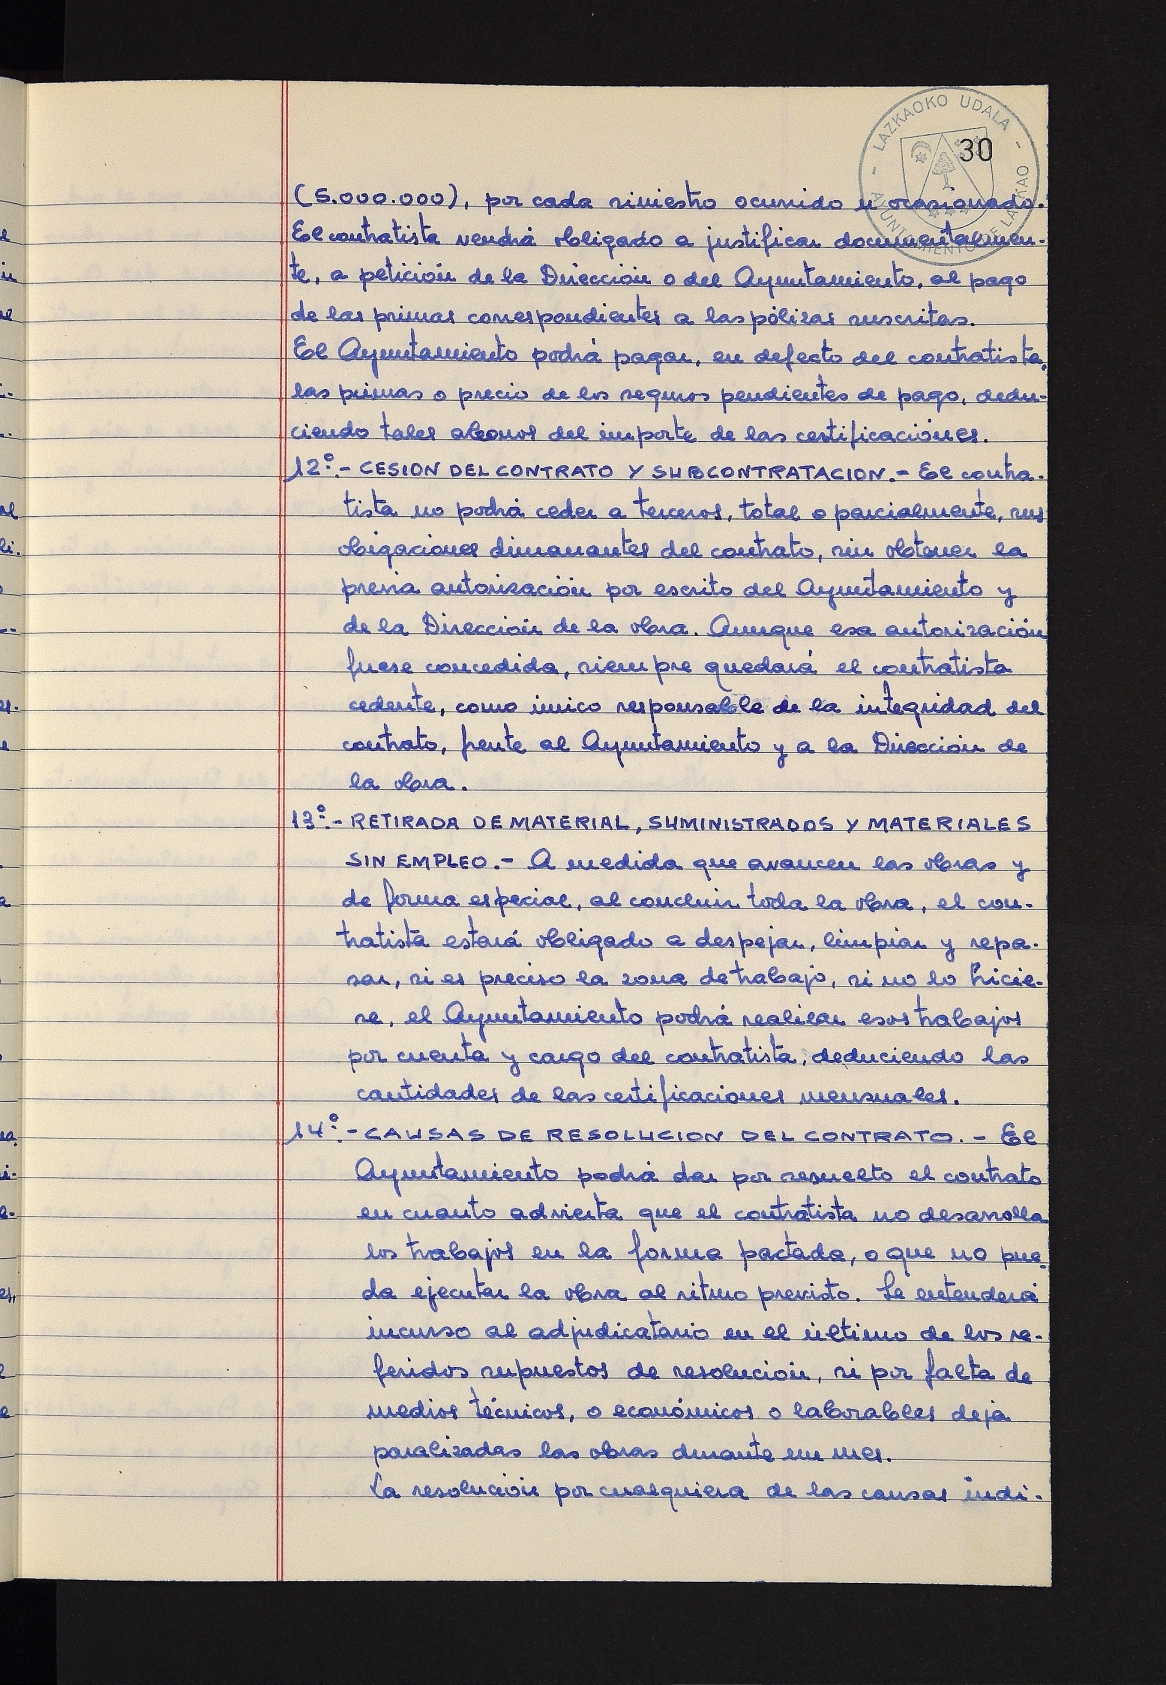 LAZKAOKO UDALA
AYUNTAMIENTO DE LAZKAO
30
(5.000.000), por cada siniestro ocurrido u ocasionado.
El contratista vendrá obligado a justificar documentalmen-
te, a petición de la Dirección o del Ayuntamiento, al pago
de las primas correspondientes a las pólizas suscritas.
El Ayuntamiento podrá pagar, en defecto del contratista,
las primas o precio de los seguros pendientes de pago, dedu-
ciendo tales abonos del importe de las certificaciones.
12º.- CESION DEL CONTRATO Y SUBCONTRATACION.- El contra-
tista no podrá ceder a terceros, total o parcialmente, sus
obigaciones dimanantes del contrato, sin obtener la
previa autorización por escrito del Ayuntamiento y
de la Dirección de la obra. Aunque esa autorización
fuese concedida, siempre quedará el contratista
cedente, como único responsable de la integridad del
contrato, frente al Ayuntamiento y a la Dirección de
la obra.
13º.- RETIRADA DE MATERIAL, SUMINISTRADOS Y MATERIALES
SIN EMPLEO.- A medida que avancen las obras y
de forma especial, al concluir toda la obra, el con-
tratista estará obligado a despejar, limpiar y repa-
sar, si es preciso la zona de trabajo, si no lo hicie-
re, el Ayuntamiento podrá realizar esos trabajos
por cuenta y cargo del contratista, deduciendo las
cantidades de las certificaciones mensuales.
14º.- CAUSAS DE RESOLUCION DEL CONTRATO.- El
Ayuntamiento podrá dar por resuelto el contrato
en cuanto advierta que el contratista no desarrolla
los trabajos en la forma pactada, o que no pue-
da ejecutar la obra al ritmo previsto. Se entenderá
incurso al adjudicatario en el último de los re-
feridos supuestos de resolución, si por falta de
medios técnicos, o económicos o laborables deja
paralizadas las obras durante un mes.
La resolución por cualquiera de las causas indi-